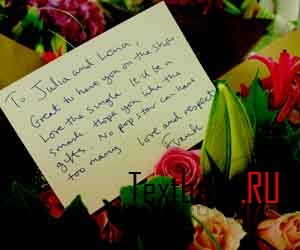 To Julia and Lena,
Great to have you on the show
Love the single. It'll be a
smash. Hope you like the
gifts. No pop star can have
too many love and respect
Frank
.RU